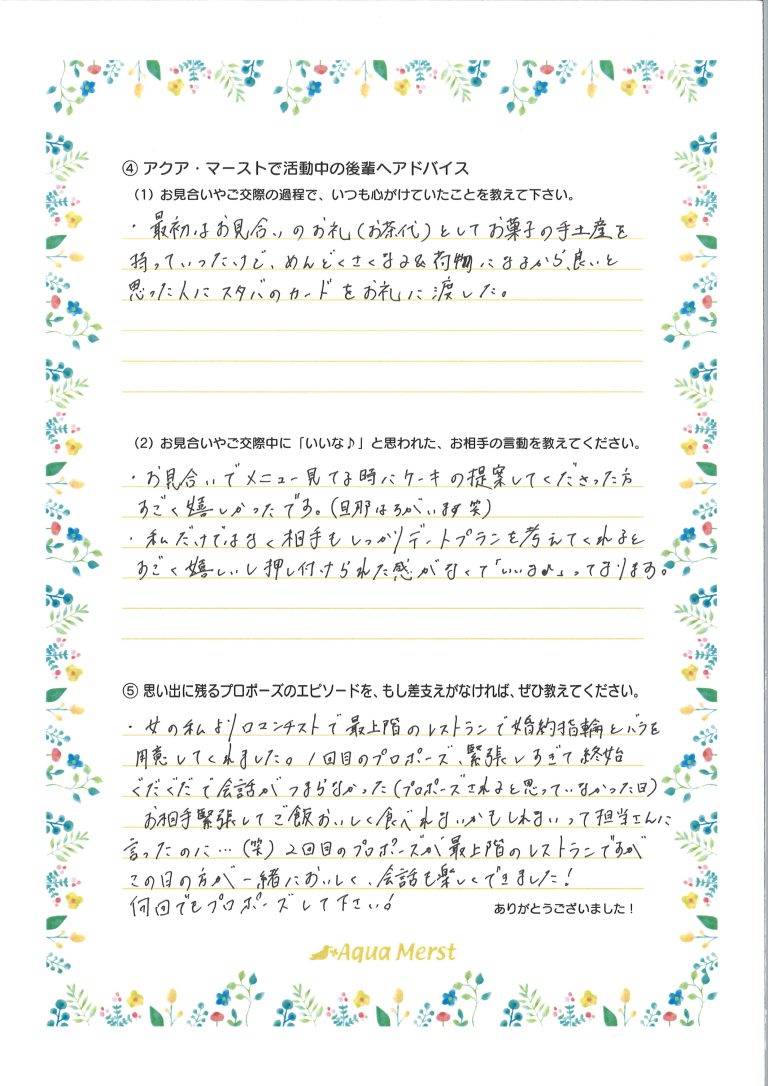 ④ アクア・マーストで活動中の後輩へアドバイス
（1）お見合いやご交際の過程で、いつも心がけていたことを教えて下さい。
・最初はお見合いのお礼（お茶代）としてお菓子の手土産を
持っていったけど、めんどくさくなる&荷物になるから、良いと
思った人にスタバのカードをお礼に渡した。
（2）お見合いやご交際中に「いいな♪」と思われた、お相手の言動を教えてください。
・お見合いでメニュー見てる時にケーキの提案してくださった方
すごく嬉しかったです。（旦那はちがいます笑）
・私だけではなく相手もしっかりデートプランを考えてくれると
すごく嬉しいし押し付けられた感がなくて「いいな♪」ってなります。
⑤ 思い出に残るプロポーズのエピソードを、もし差支えがなければ、ぜひ教えてください。
・女の私よりロマンチストで最上階のレストランで婚約指輪とバラを
用意してくれました。1回目のプロポーズ、緊張しすぎて終始
ぐだぐだで会話がつまらなかった（プロポーズされると思っていなかった日）
お相手緊張してご飯おいしく食べれないかもしれないって担当さんに
言ったのに…（笑）2回目のプロポーズが最上階のレストランですが
この日の方が一緒においしく、会話も楽しくできました!
何回でもプロポーズして下さい!
ありがとうございました!
Aqua Merst